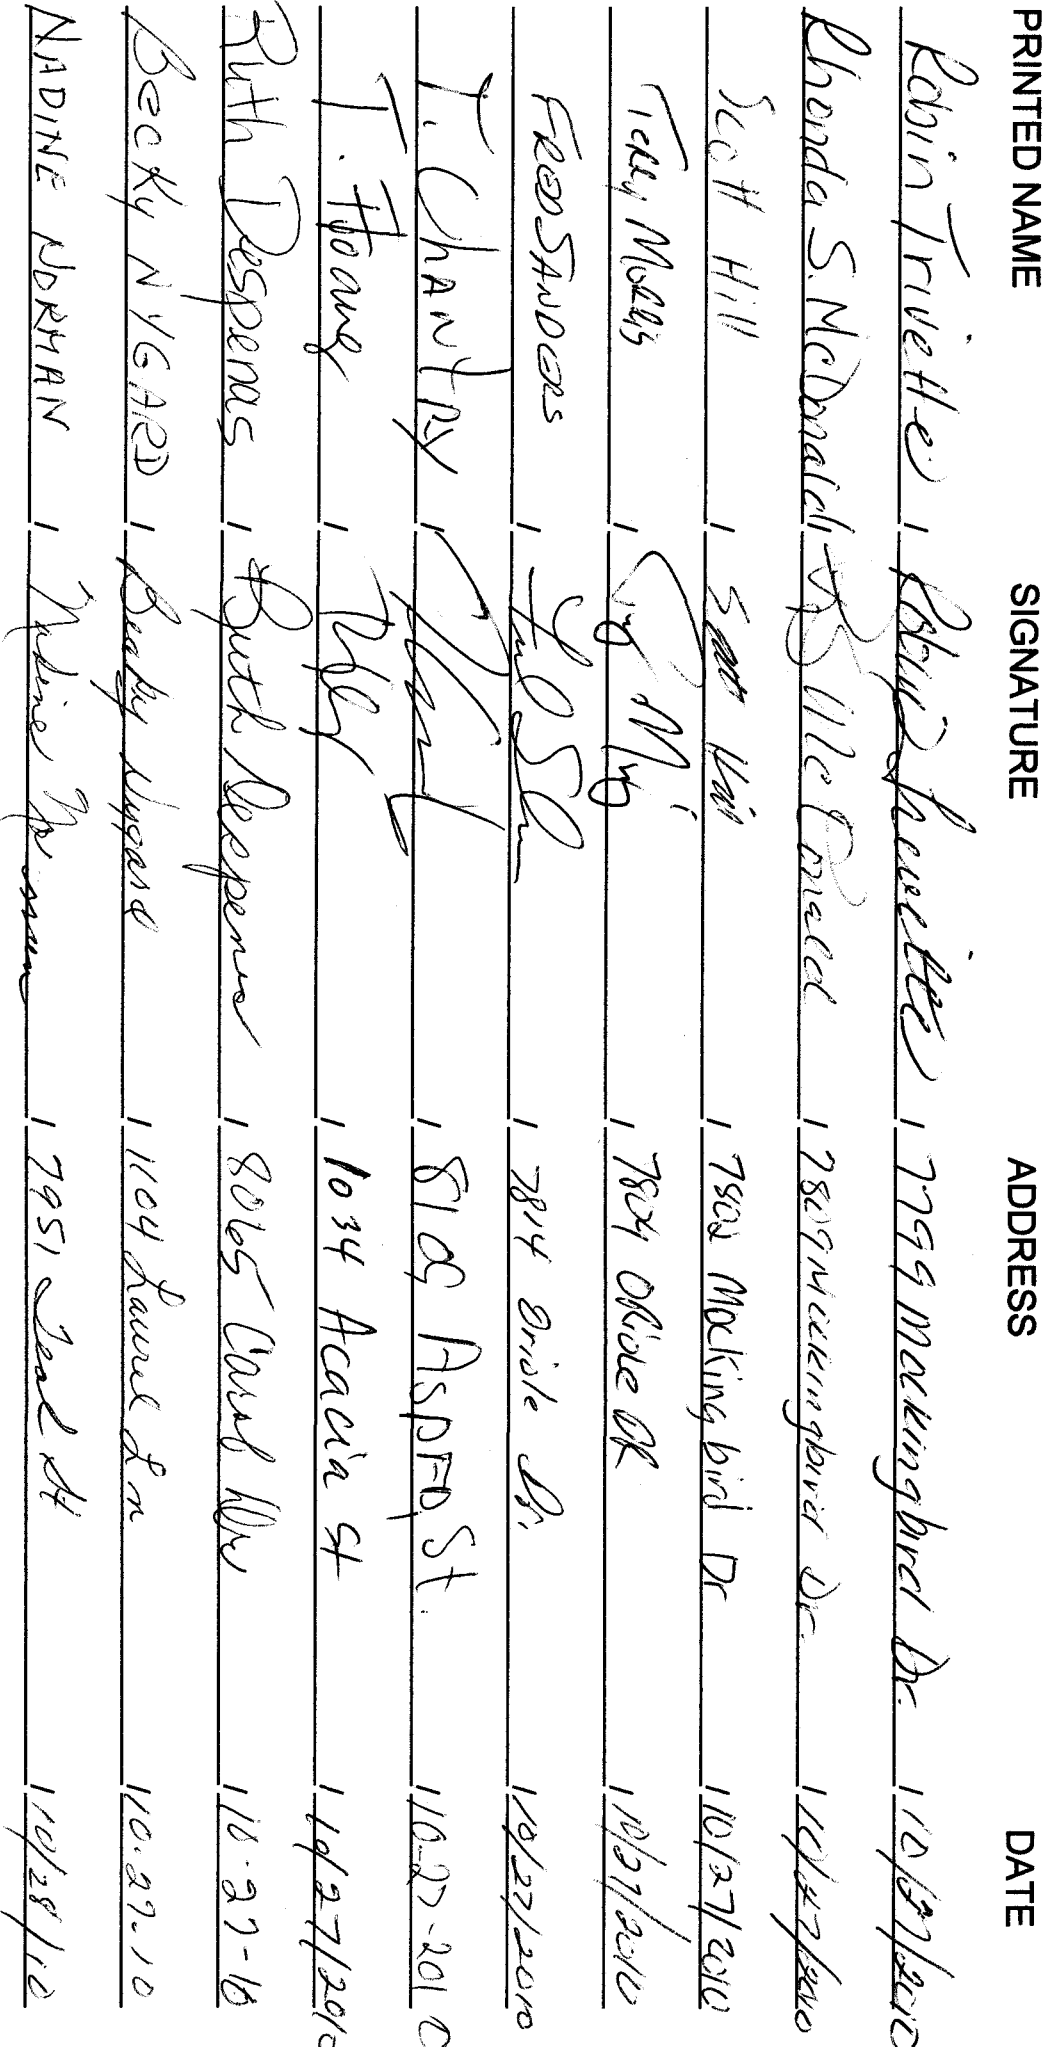 PRINTED NAME SIGNATURE ADDRESS DATE
Robin Trivette / Robin Trivette / 7799 Mockingbird Dr. / 10/27/2010
Rhonda S. McDonald / McDonald / 7809 Mockingbird Dr. / 10/27/2010
Scott Hill / Scott Hill / 7802 Mockingbird Dr / 10/27/2010
Terry / 7804 Oriole DR / 10/27/2010
FRED SANDERS / / 7814 Oriole Dr. / 10/27/2010
T. CHANTRY / / 8109 Aspen St. / 10-27-2010
T. Hoang / / 1034 Acacia St / 10/27/2010
Ruth Despenas / Ruth Despenas / 8065 Carol / 10-27-10
Becky NYGARD / Becky Nygard / 1104 Laurel Ln / 10-27-10
NADINE NORMAN / Nadine Norman / 7951 Teal St / 10/28/10